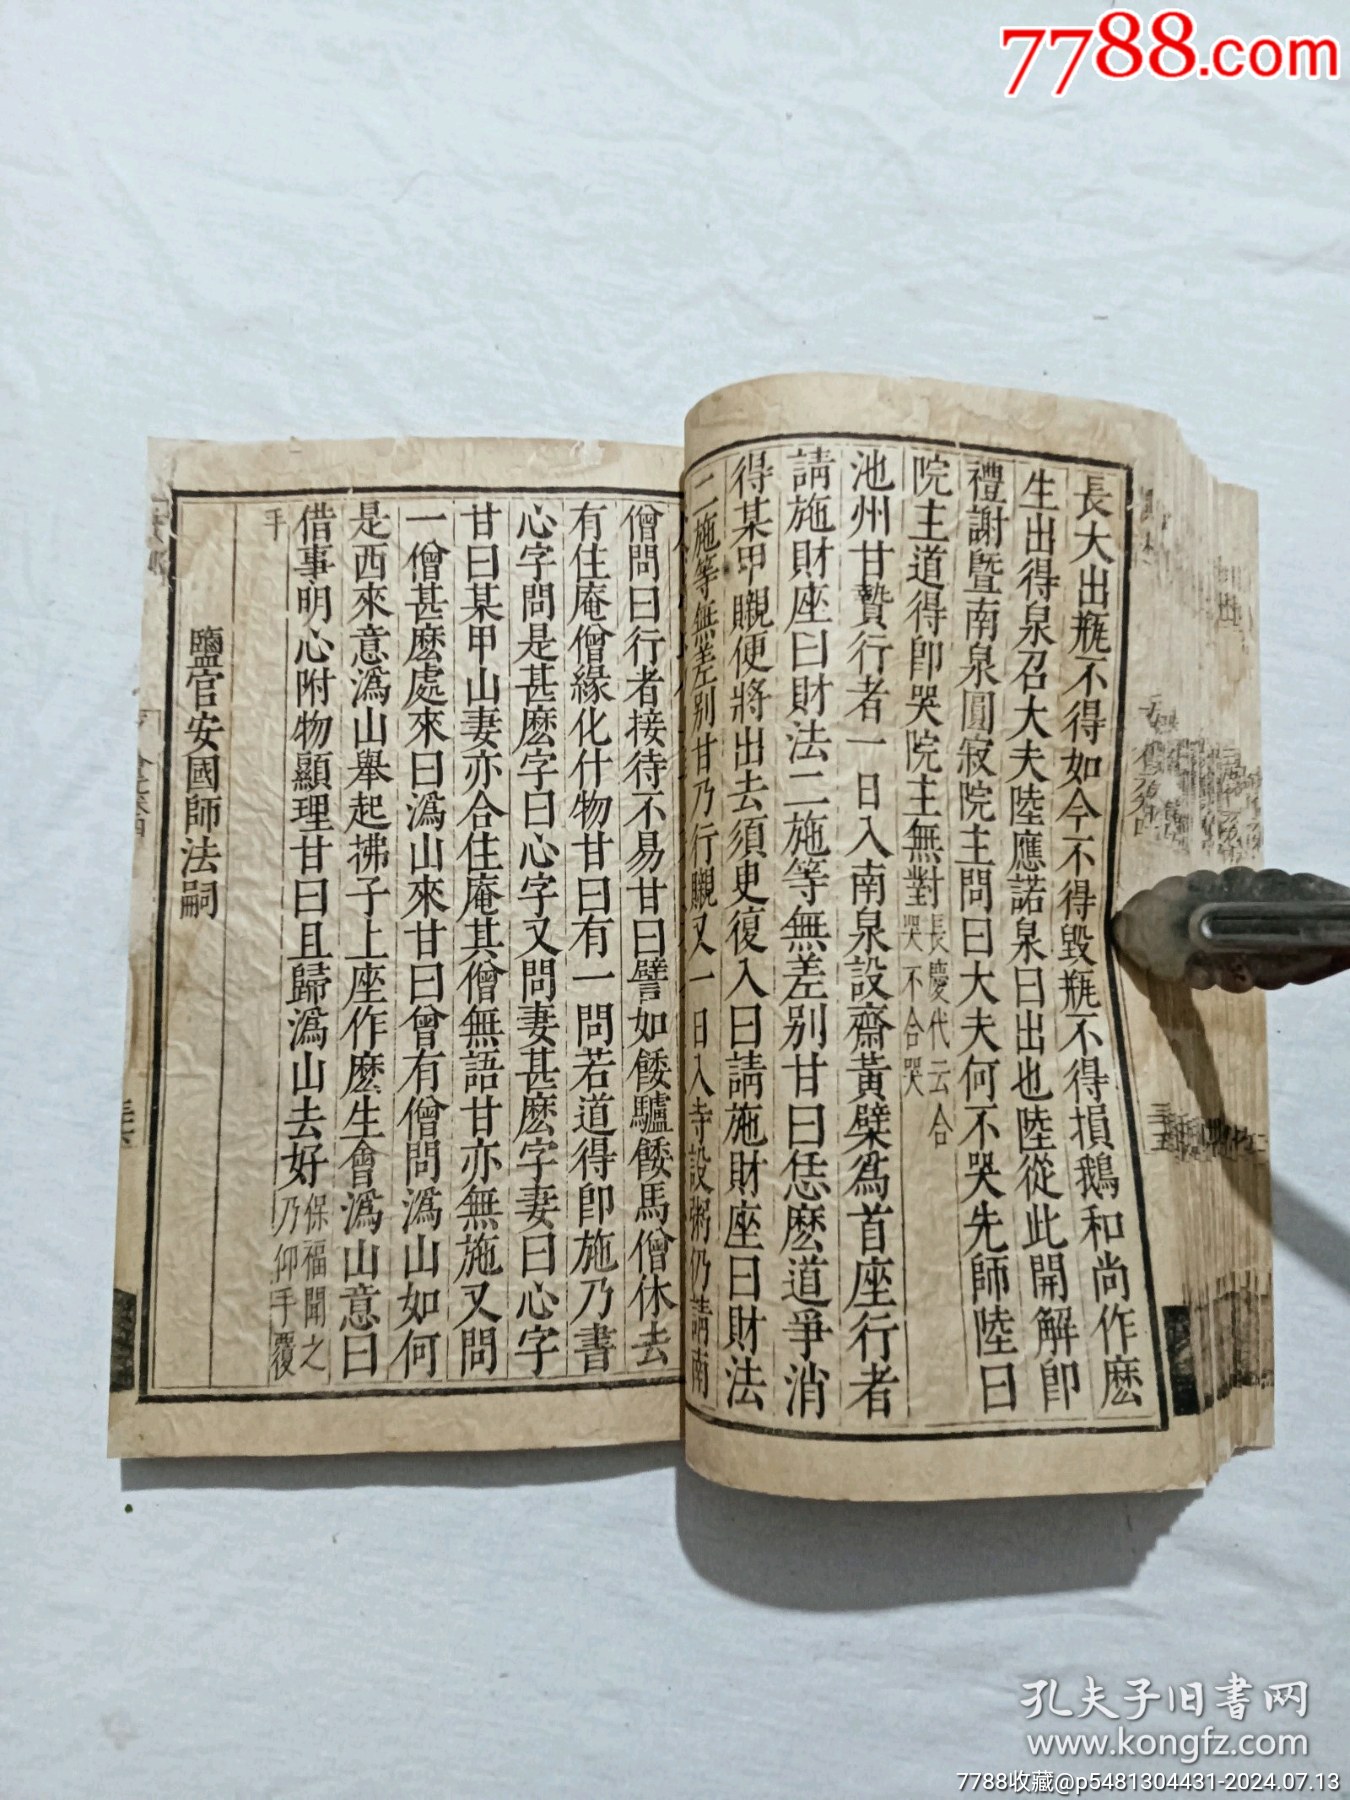 7788.com
長大出瓶不得如今不得毀瓶不得損鵝和尚作麽
生出得泉召大夫陸應諾泉曰出也陸從此開解即
禮謝暨南泉圓寂院主問曰大夫何不哭先師陸曰
院主道得即哭院主無對長慶代云合哭不合哭
池州甘贄行者一日入南泉設齋黃檗為首座行者
請施財座曰財法二施等無差別甘曰恁麽道爭消
得某甲䞋便將出去須臾復入曰請施財座曰財法
二施等無差別甘乃行䞋又一日入寺設粥仍請南
僧問曰行者接待不易甘曰譬如餧驢餧馬僧休去
有住庵僧緣化什物甘曰有一問若道得即施乃書
心字問是甚麽字曰心字又問妻甚麽字妻曰心字
甘曰某甲山妻亦合住庵其僧無語甘亦無施又問
一僧甚麽處來曰溈山來甘曰曾有僧問溈山如何
是西來意溈山舉起拂子上座作麽生會溈山意曰
借事明心附物顯理甘曰且歸溈山去好保福聞之乃仰手覆
手
鹽官安國師法嗣
孔夫子旧書网
www.kongfz.com
7788收藏@p5481304431-2024.07.13